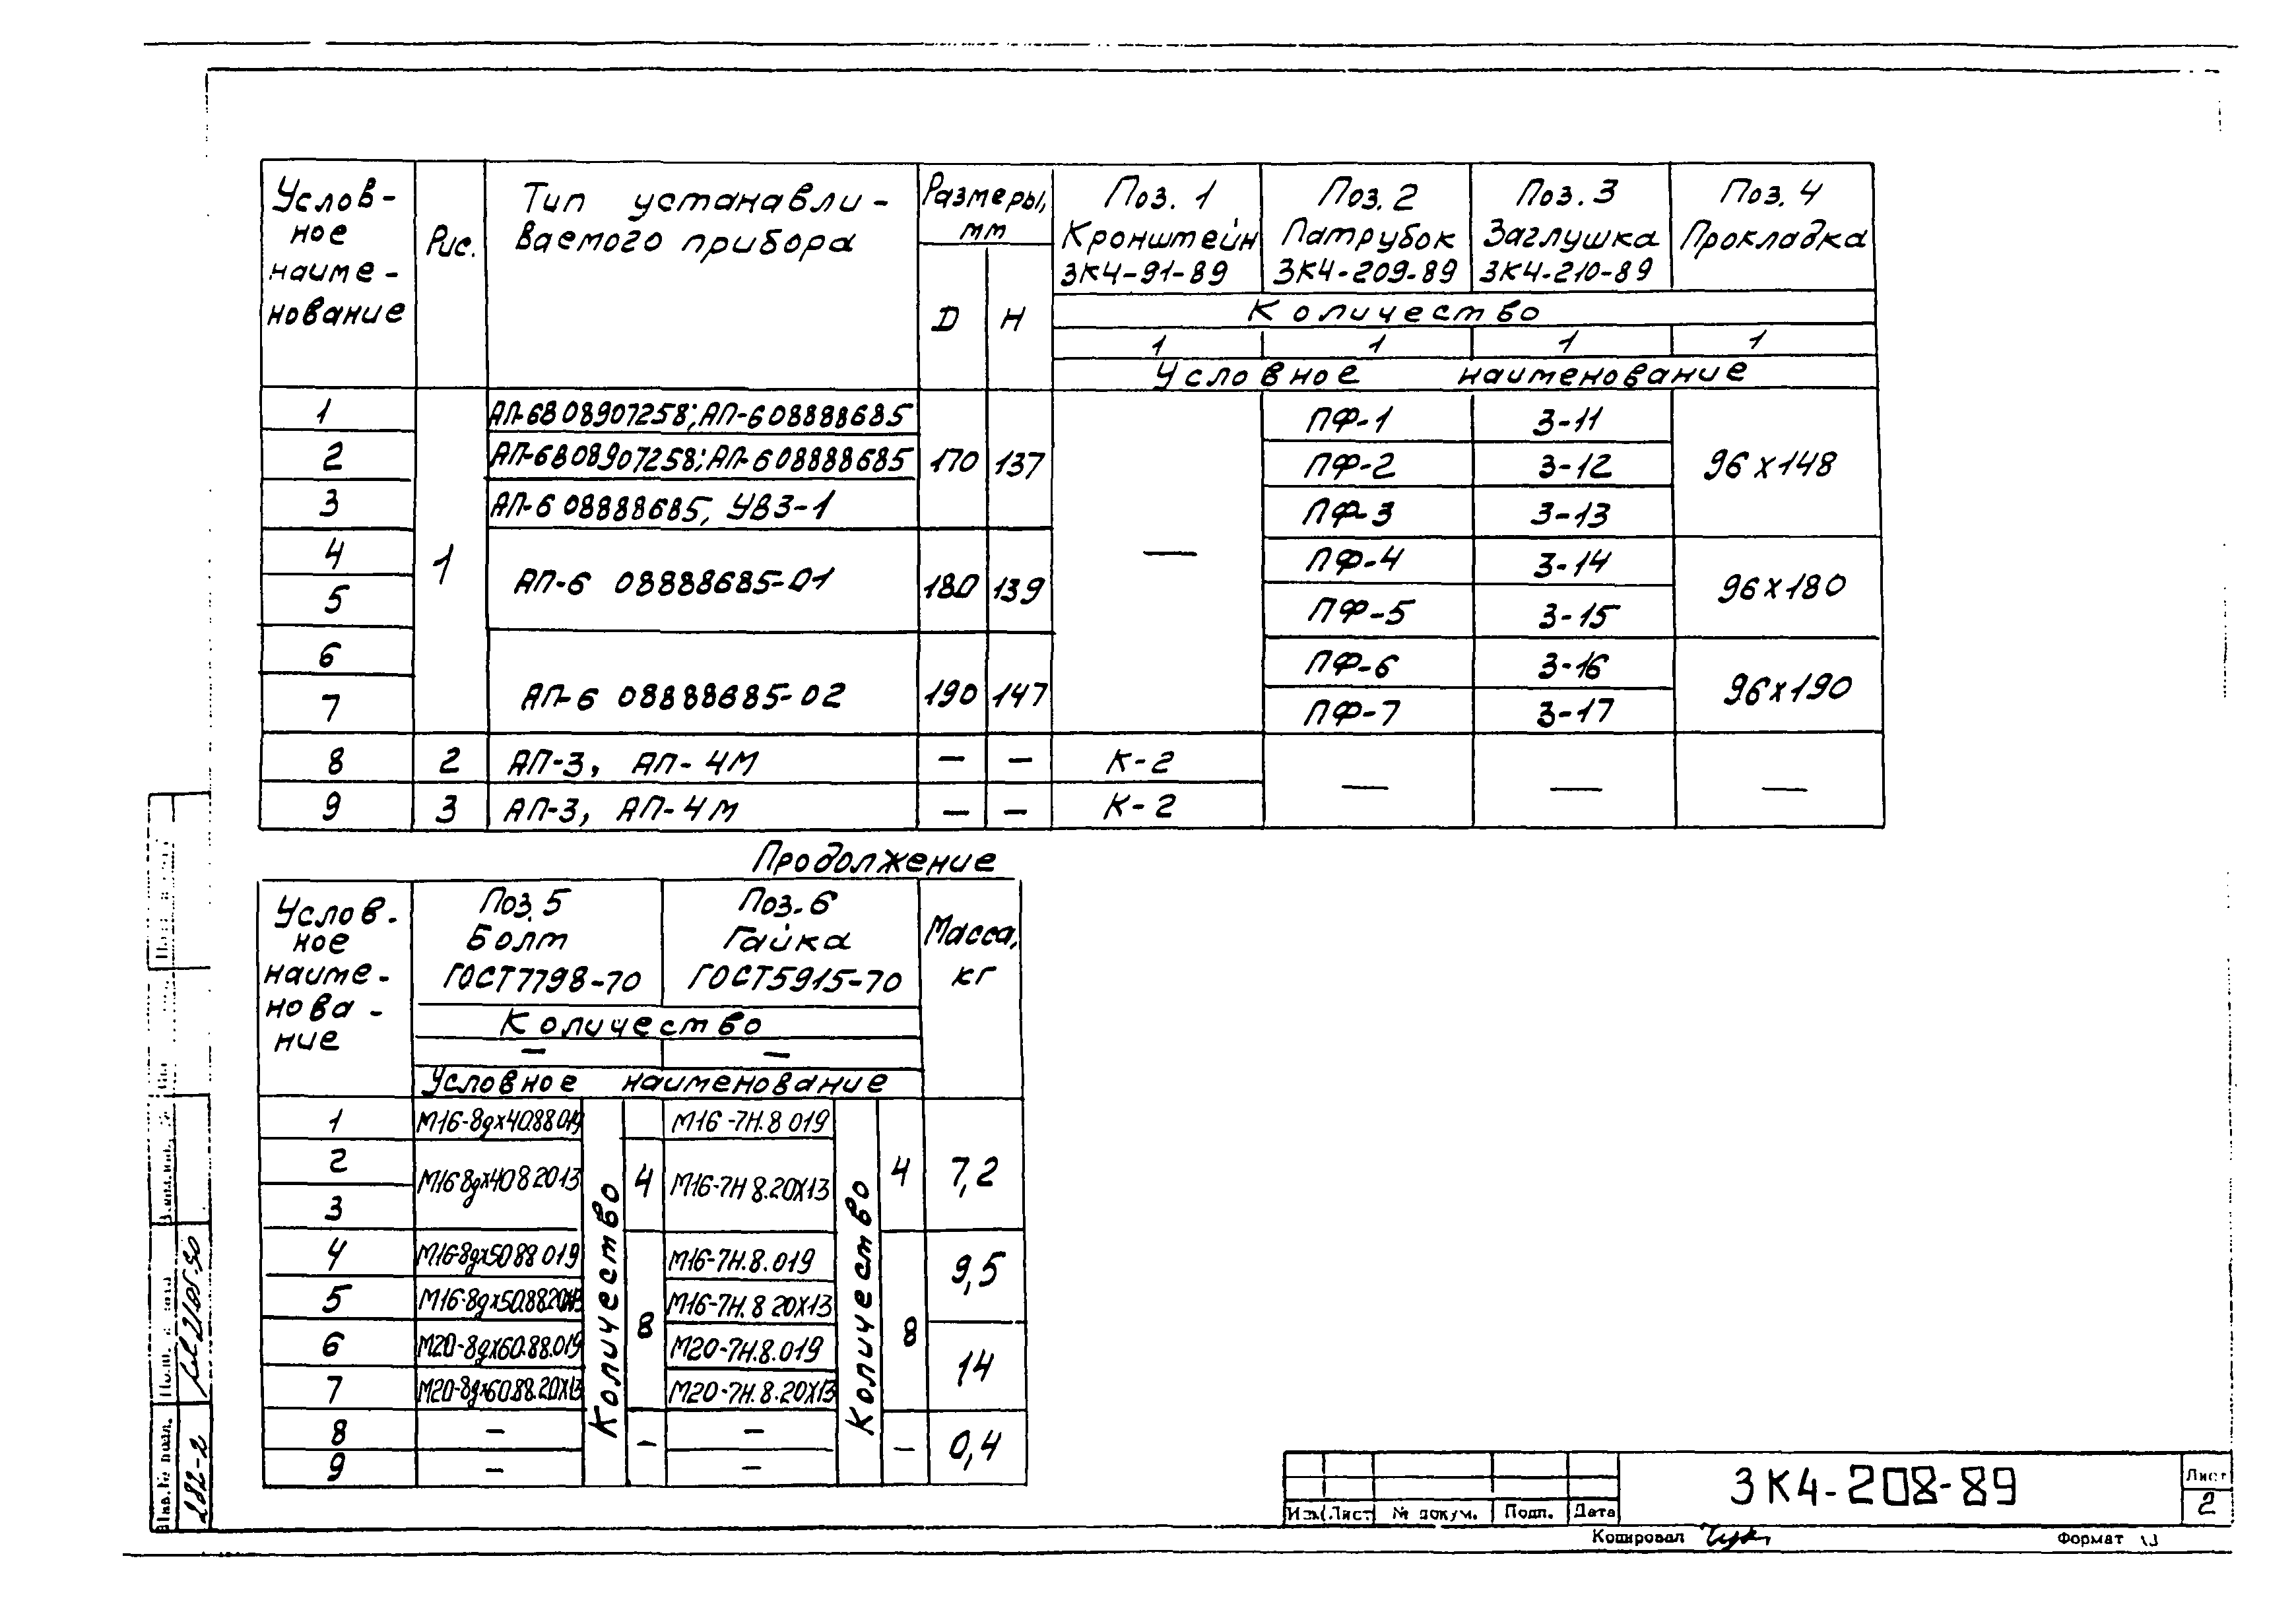 Услов-
ное
наиме-
нование
Рис.
Тип устанавли-
ваемого прибора
Размеры,
мм
D
H
Поз. 1
Кронштейн
ЗК4-91-89
Поз. 2
Патрубок
ЗК4-209-89
Поз. 3
Заглушка
ЗК4-210-89
Поз. 4
Прокладка
Количество
1 1 1 1
Условное наименование
1 АП-6В 08907258; АП-6 08888685 ПФ-1 З-11
2 АП-6В 08907258; АП-6 08888685 170 137 ПФ-2 З-12 96х148
3 АП-6 08888685, УВЗ-1 ПФ-3 З-13
4 ПФ-4 З-14
1 АП-6 08888685-01 180 139 — 96х180
5 ПФ-5 З-15
6 ПФ-6 З-16
АП-6 08888685-02 190 147 96х190
7 ПФ-7 З-17
8 2 АП-3, АП-4М — — К-2
— — —
9 3 АП-3, АП-4М — — К-2
Продолжение
Услов-
ное
наиме-
нова-
ние
Поз. 5
Болт
ГОСТ7798-70
Поз. 6
Гайка
ГОСТ5915-70
Масса,
кг
Количество
— —
Условное наименование
1 М16-8gх40.88 019 М16-7Н.8 019
2
М16 8gх40 8 20 13 4 М16-7Н 8.20Х13 4 7,2
3
4 М16-8gх50 88 019 М16-7Н.8.019
9,5
5 М16-8gх50.88 М16-7Н.8 20Х13
Количество 8 Количество 8
6 М20-8gх60.88.019 М20-7Н.8.019
14
7 М20-8gх60.88.20Х13 М20-7Н.8.20Х13
8 — —
— — 0,4
9 — —
Инв.№ подл.
282-2
Взам.инв.
ЗК4-208-89
Лист
2
Изм. Лист № докум. Подп. Дата
Копировал
Формат